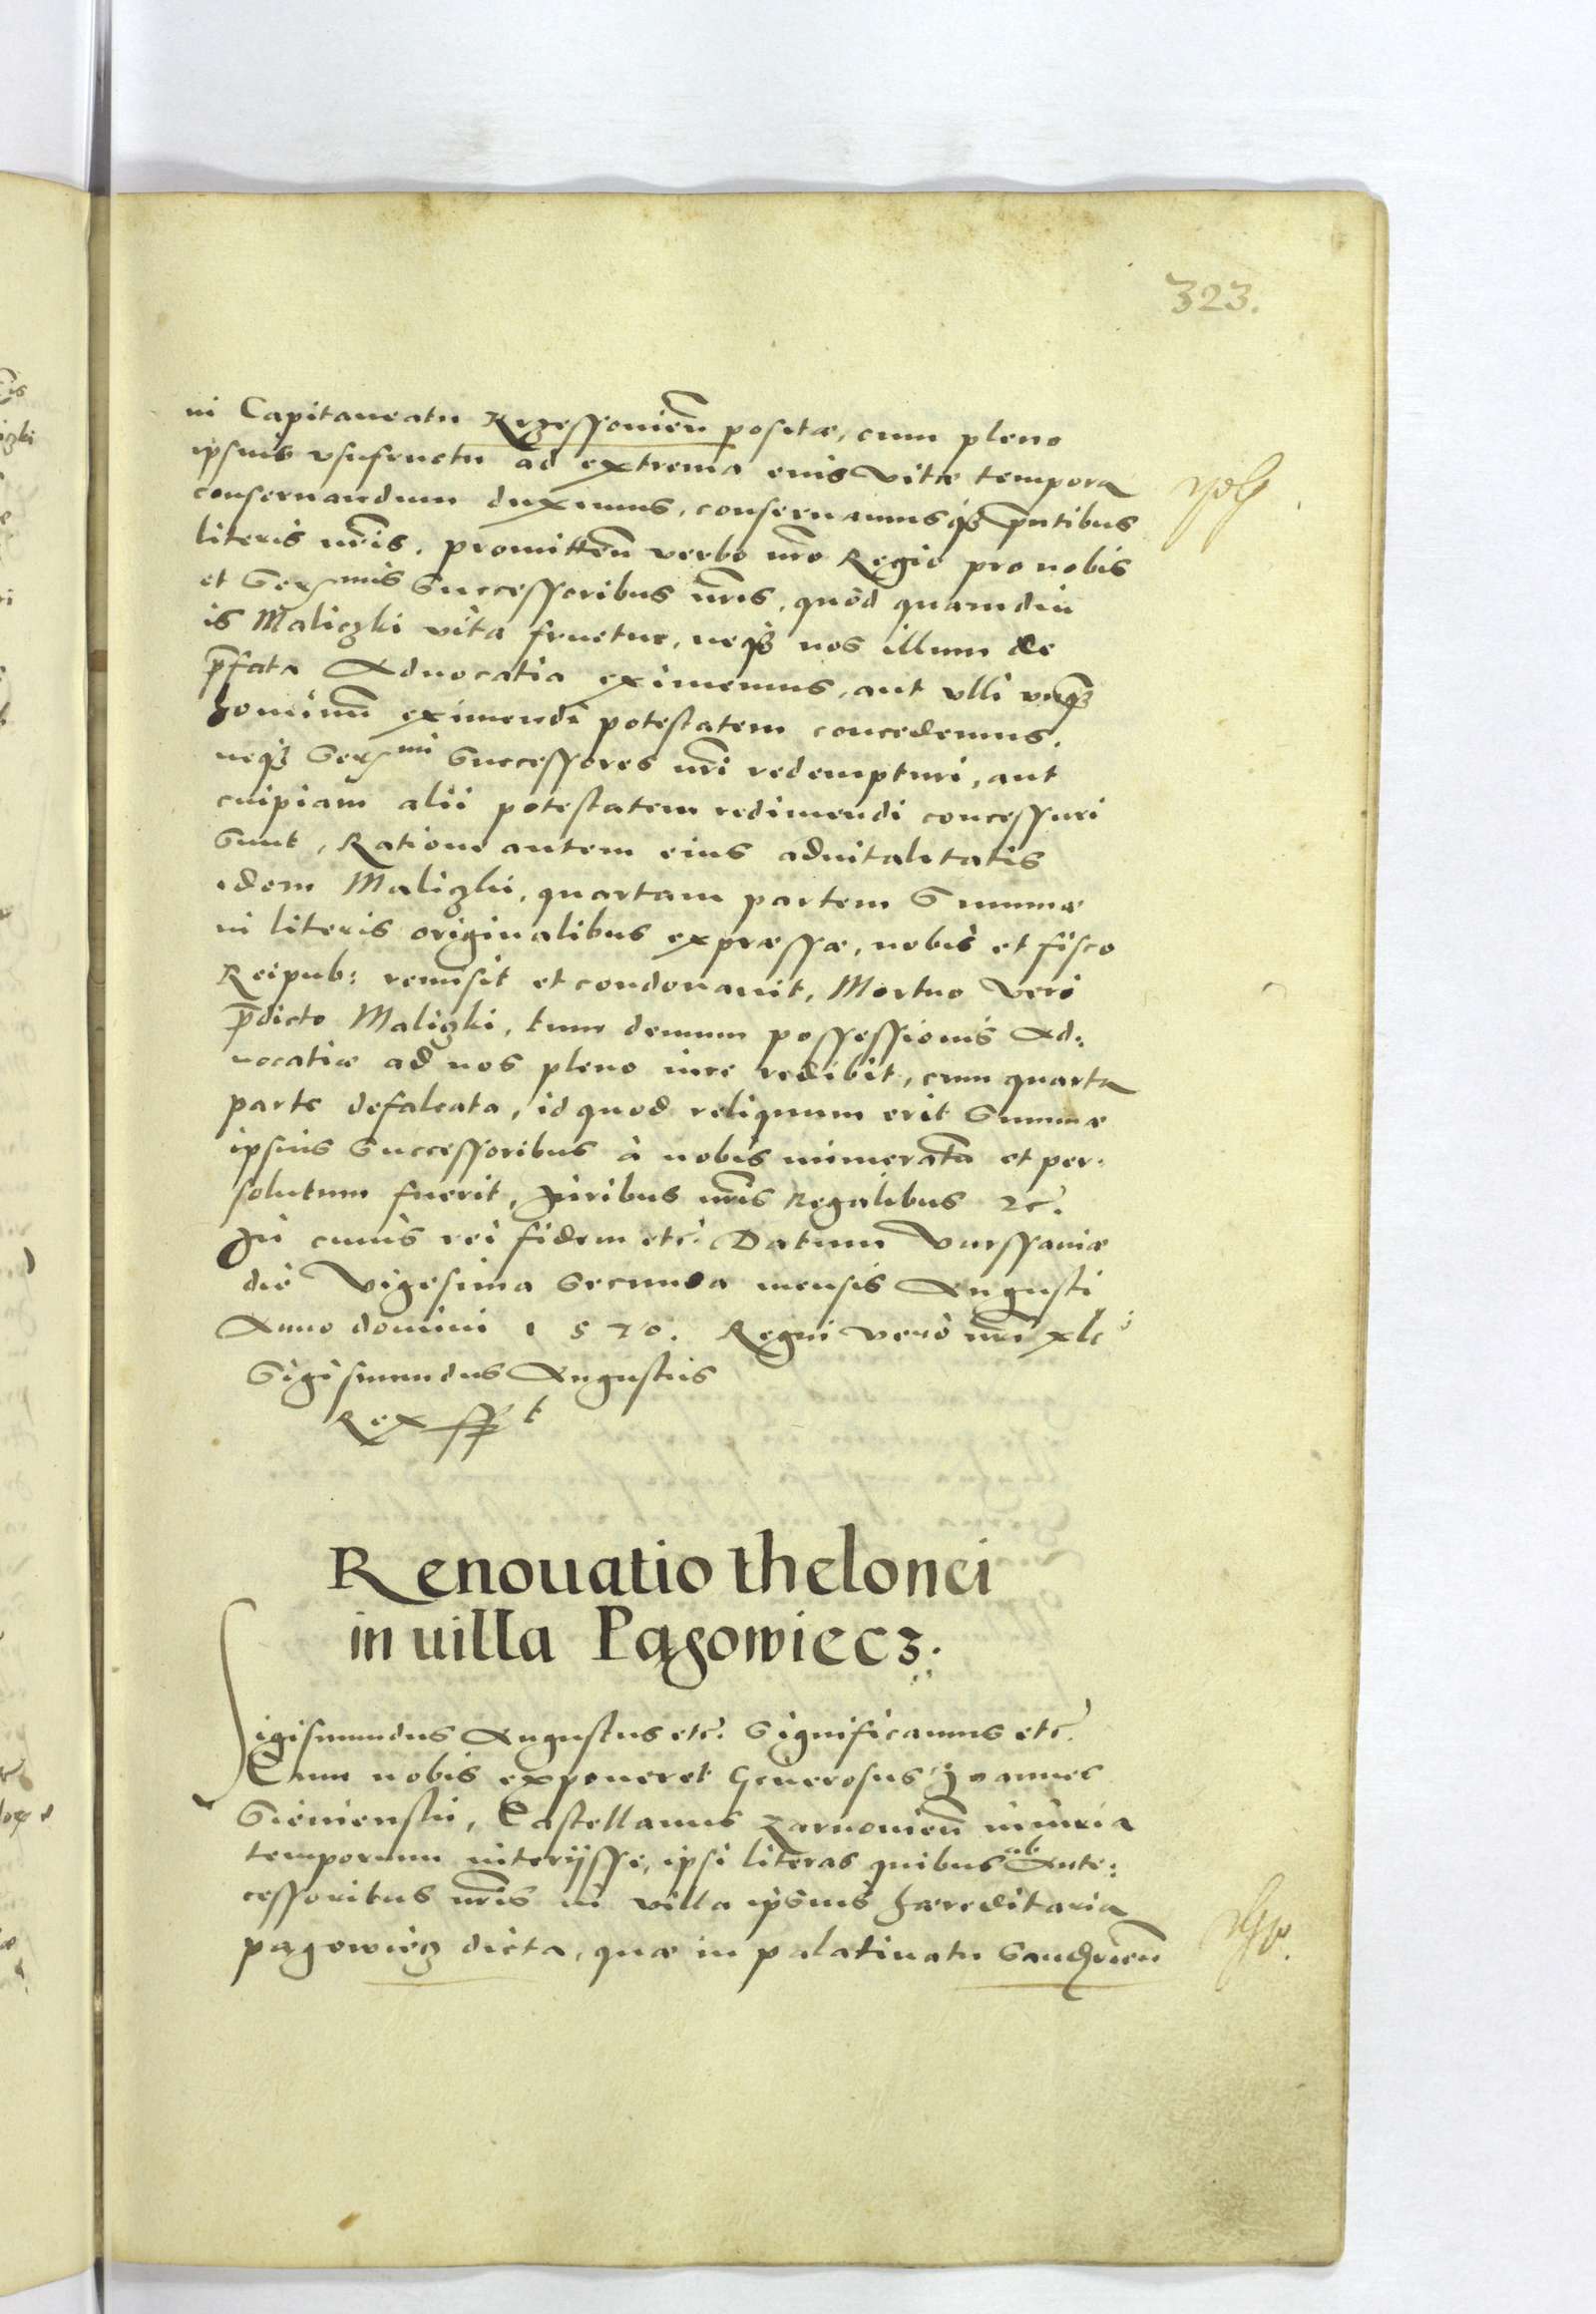 323.
in Capitaneatu Rzessouien̄ positæ, cum pleno
ipsius vsufructu ad extrema eius vitæ tempora
conseruandum duximus, conseruamusq3 p̄ntibus
literis nr̄is. promitteñ verbo nr̄o Regio pro nobis
et Ser^mis Successoribus nr̄is, quòd quamdiu
is Maliczki vita fruetur, neq3 nos illum de
p̄fata Aduocatia eximemus, aut vlli vnq3
hominū eximendi potestatem concedemus.
neq3 Ser^mi Successores nr̄i redempturi, aut
cuipiam alii potestatem redimendi concessuri
sunt, Ratione autem eius aduitalitatis
idem Maliczki, quartam partem Summæ
in literis originalibus expræssæ, nobis et fisco
Reipub: remisit et condonauit, Mortuo verò
p̄dicto Maliczki, tum demum possessionis Ad:
uocatiæ ad nos pleno iure redibit, cum quarta
parte defalcata, id quod reliquum erit Summæ
ipsius Successoribus à nobis numeratū et per:
solutum fuerit, Juribus nr̄is Regalibus etc.
In cuius rei fidem etc. Datum Varssauiæ
die Vigesima Secunda mensis Augusti
Anno domini 1570. Regni verò nr̄i xli
Sigismundus Augustus
Rex sspt
Renouatio thelonei
in uilla Pągowiecz.
Sigismundus Augustus etc. Significamus etc.
Cum nobis exponeret Generosus Joannes
Sienienski, Castellanus Zarnouien̄ iniuria
temporum interijsse, ipsi literas quibus ab Ante:
cessoribus nr̄is in villa ipsius hæreditaria
pągowiecz dicta, quæ in palatinatu Sandomirien̄